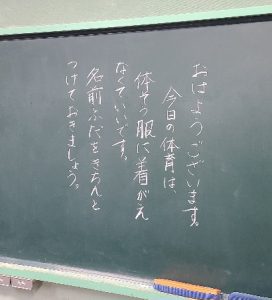 おはようございます。
今日の体育は、
体そう服に着がえ
なくていいです。
名前ふだをきちんと
つけておきましょう。